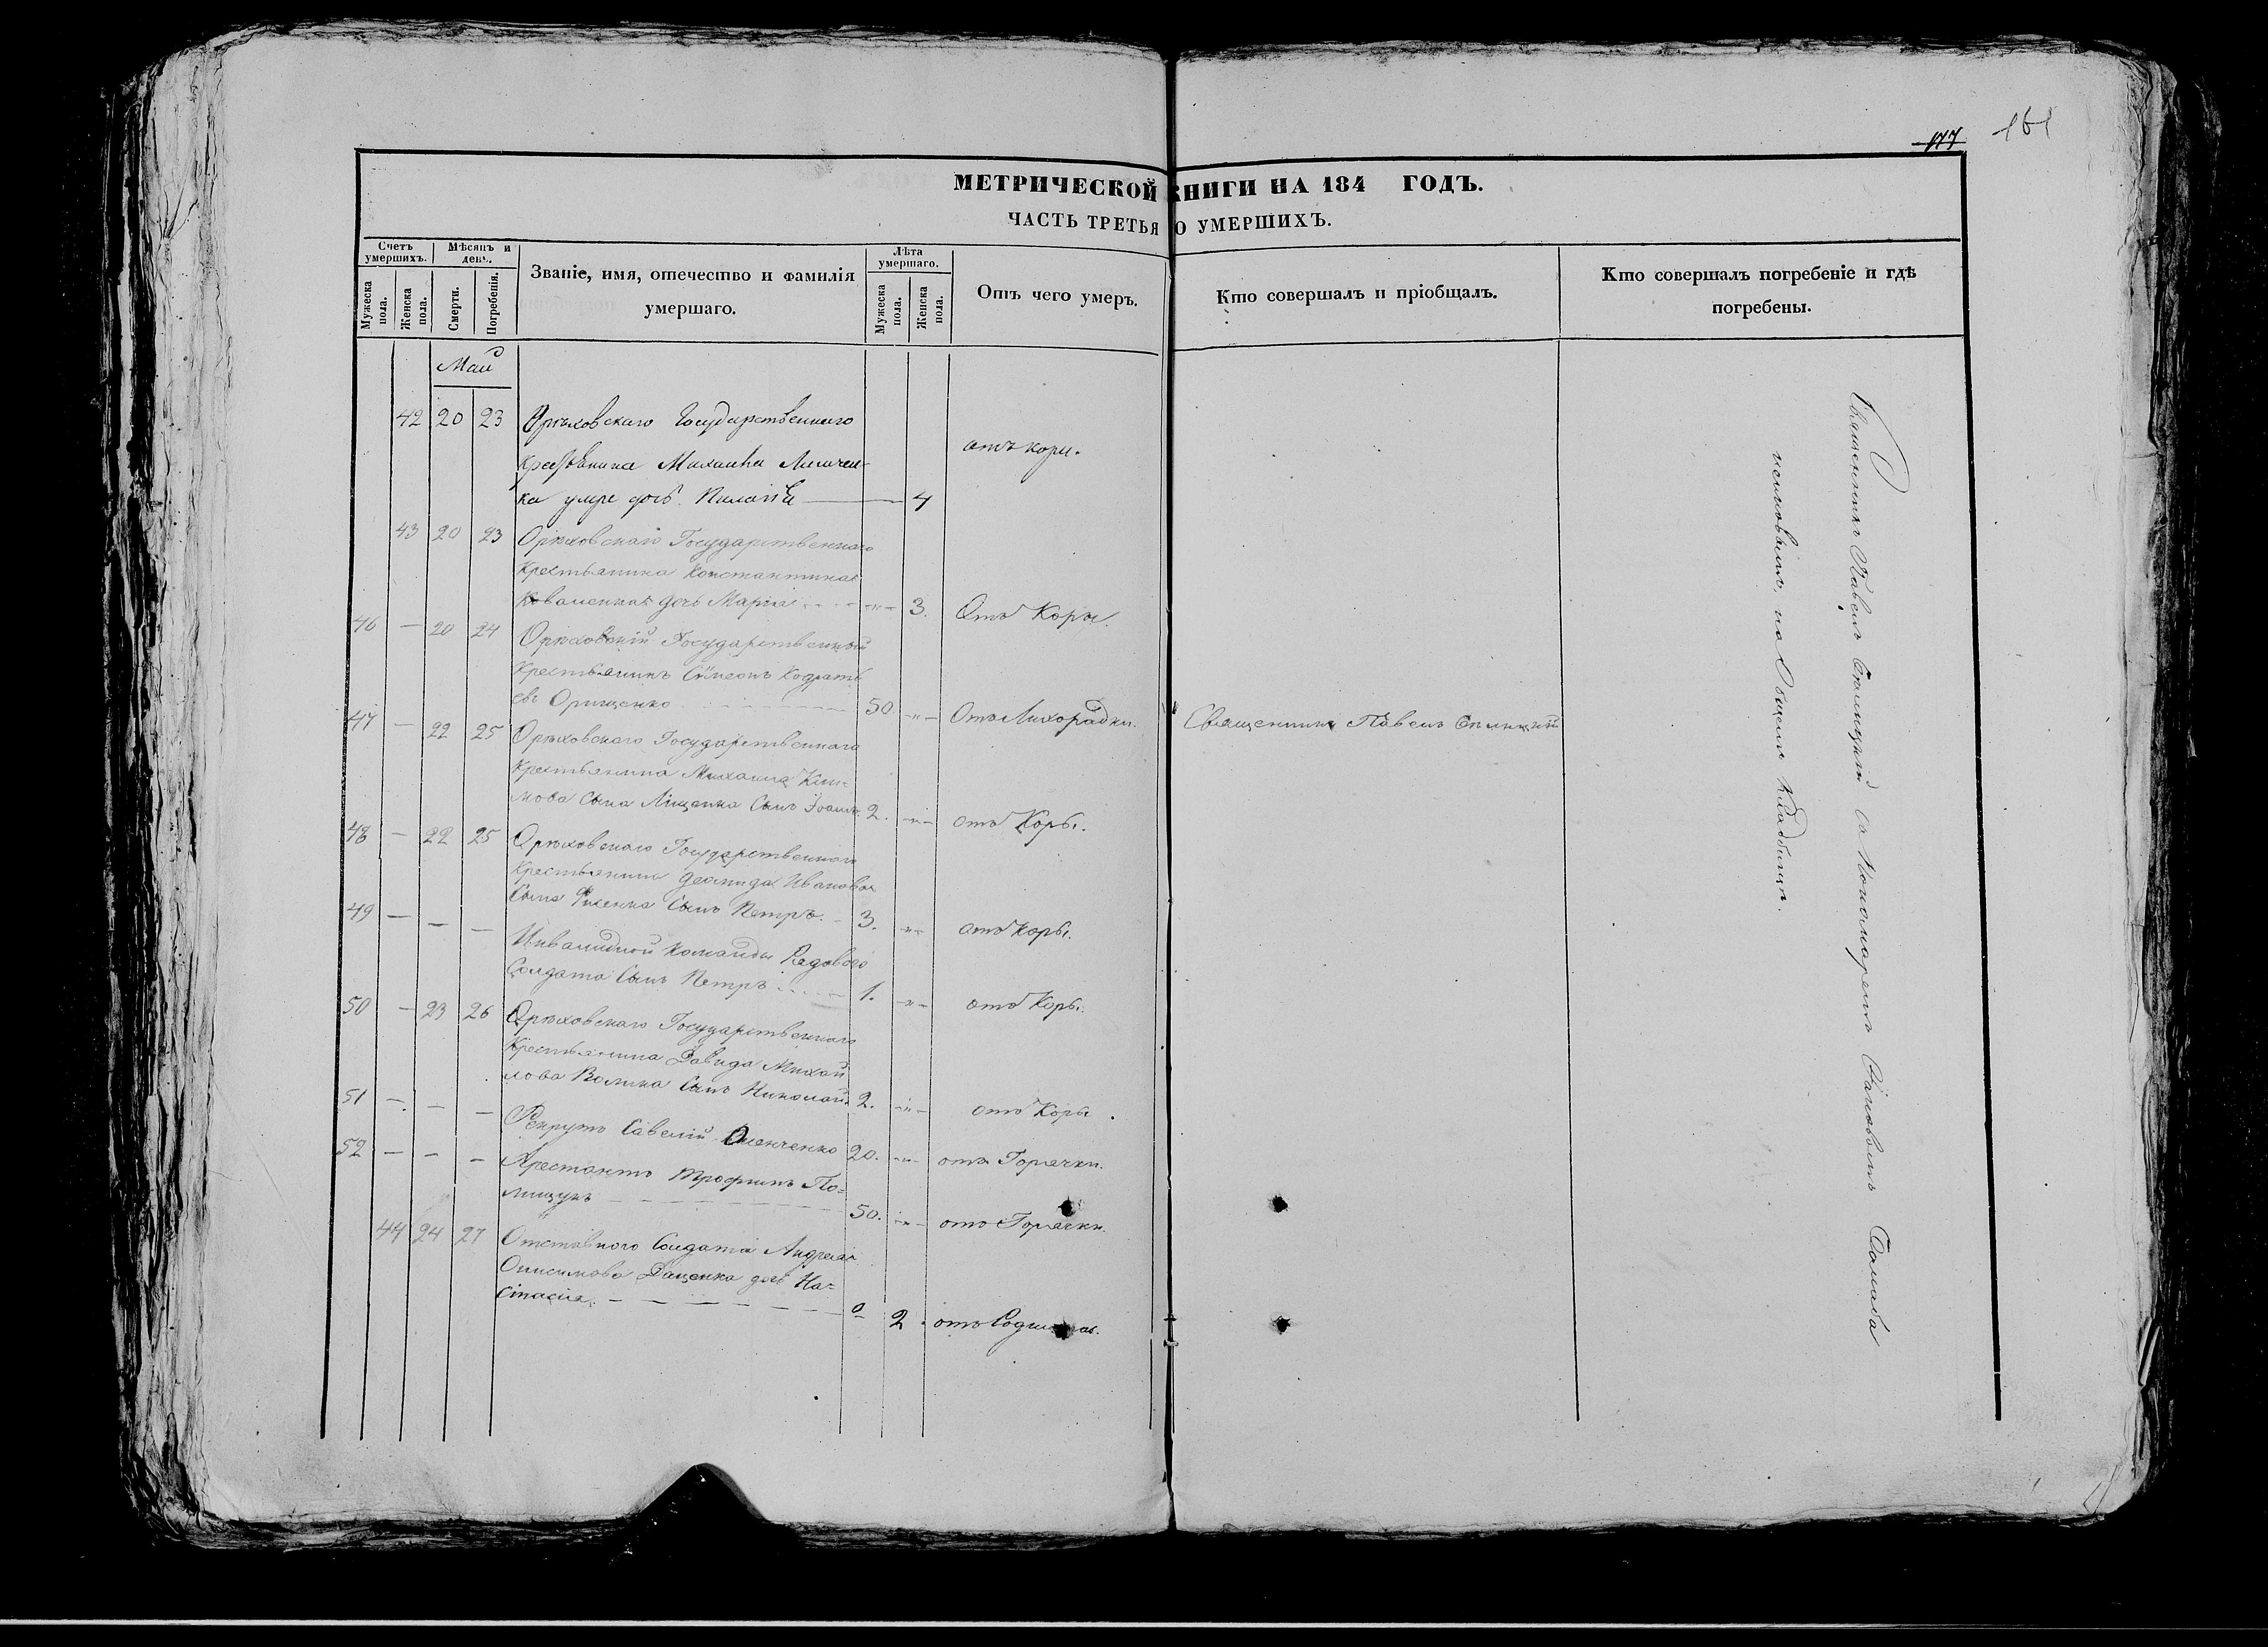 161
177
МЕТРИЧЕСКОЙ КНИГИ НА 184 ГОДЪ.
ЧАСТЬ ТРЕТЬЯ О УМЕРШИХЪ.
Счетъ умершихъ.
Мужеска пола.
Женска пола.
Мѣсяцъ и день.
Смерти.
Погребенія.
Званіе, имя, отечество и фамилія
умершаго.
Лѣта умершаго.
Мужеска пола.
Женска пола.
Отъ чего умеръ.
Кто совершалъ и пріобщалъ.
Кто совершалъ погребеніе и гдѣ
погребены.
Май
42 20 23 Орѣховскаго Государственнаго
крестьянина Михаила
ка умре дочь 4 отъ кори.
43 20 23 Орѣховскаго Государственнаго
Крестьянина Константина
Коваленка дочь Марія 3. Отъ Коры.
46 — 20 24 Орѣховскій Государственный
Крестьянинъ Сѵмеонъ Кодрать
евъ Орищенко 50 -"- Отъ Лихорадки. Священникъ Павелъ
47 — 22 25 Орѣховскаго Государственнаго
Крестьянина Михаила Кли-
мова Сына Ліщенка Сынъ Іоаннъ 2. -"- отъ Коры.
48 — 22 25 Орѣховскаго Государственнаго
Крестьянина Иванова
Сына Сынъ Петръ. 3. -"- отъ Коры.
49 — — — Инвалидной Команды Рядового
Солдата Сынъ Петръ 1. -"- отъ Коры.
50 — 23 26 Орѣховскаго Государственнаго
Крестьянина Давида Михай
лова Сынъ Николай. 2. -"- отъ Коры.
51 — — — Рекрутъ Савелій 20. -"- отъ Горячки.
52 — — — Арестантъ Трофимъ По=
лищукъ 50. -"- отъ Горячки.
44 24 27 Отставного Солдата Андрея
Онисимова Даценка дочь На=
стасія. 2. отъ
Священникъ Павелъ съ Пономаремъ
на Общемъ Кладбищѣ.